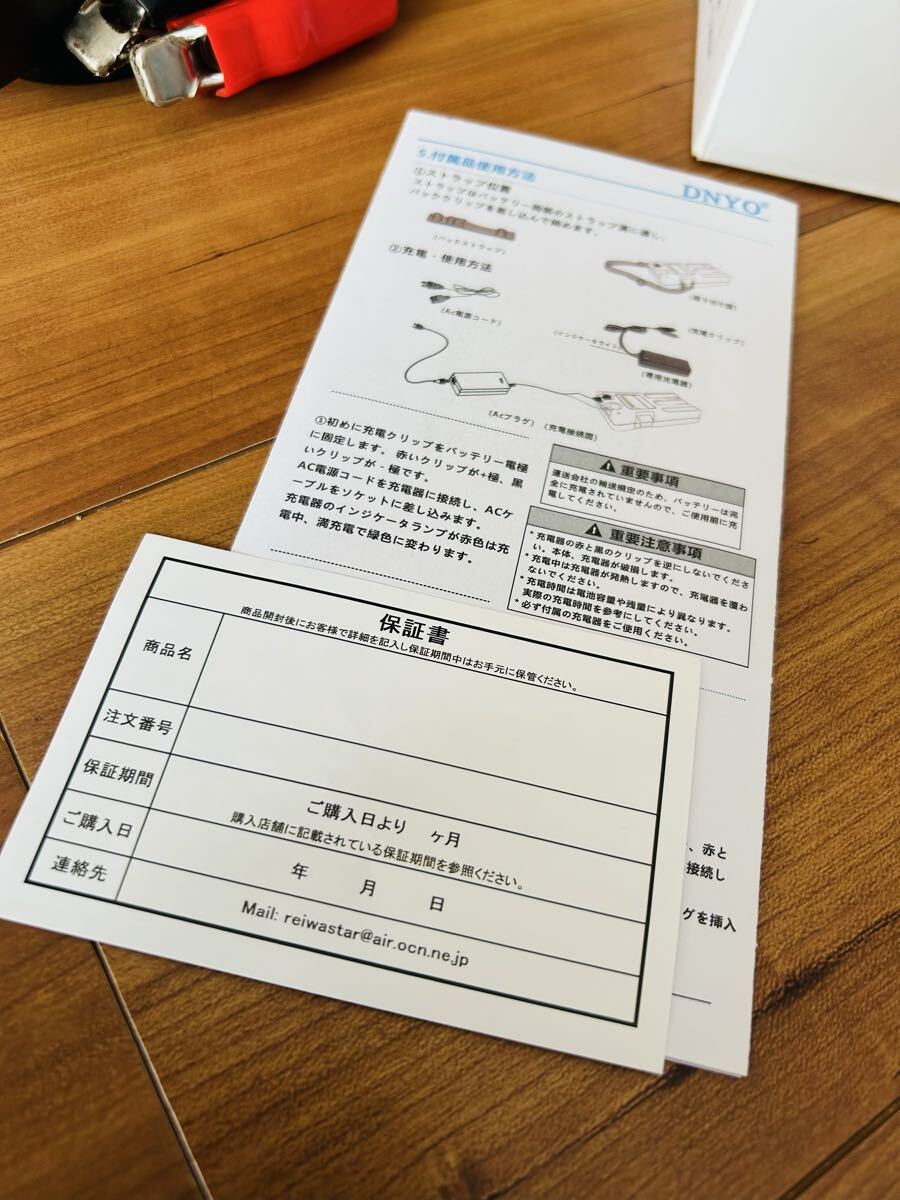 5.付属品使用方法
DNYO®
①ストラップ位置
ストラップはバッテリー両側のストラップ溝に通し、
バッククリップを差し込んで締めます。
(バックストラップ)
②充電・使用方法
(Ac電源コード)
(充電クリップ)
(インジケータライト)
(専用充電器)
(Acプラグ)
(充電接続図)
①初めに充電クリップをバッテリー電極
に固定します。赤いクリップが+極、黒
いクリップが - 極です。
AC電源コードを充電器に接続し、ACケ
ーブルをソケットに差し込みます。
充電器のインジケータランプが赤色は充
電中、満充電で緑色に変わります。
重要事項
運送会社の輸送規定のため、バッテリーは完
全に充電されていませんので、ご使用前に充
電してください。
重要注意事項
* 充電器の赤と黒のクリップを逆にしないでくださ
い。本体、充電器が破損します。
* 充電中は充電器が発熱しますので、充電器を覆わ
ないでください。
* 充電時間は電池容量や残量により異なります。
実際の充電時間を参考にしてください。
* 必ず付属の充電器をご使用ください。
、赤と
接続し
グを挿入
保証書
商品開封後にお客様で詳細を記入し保証期間中はお手元に保管ください。
商品名
注文番号
保証期間
ご購入日より ヶ月
購入店舗に記載されている保証期間を参照ください。
ご購入日
年 月 日
連絡先
Mail: reiwastar@air.ocn.ne.jp